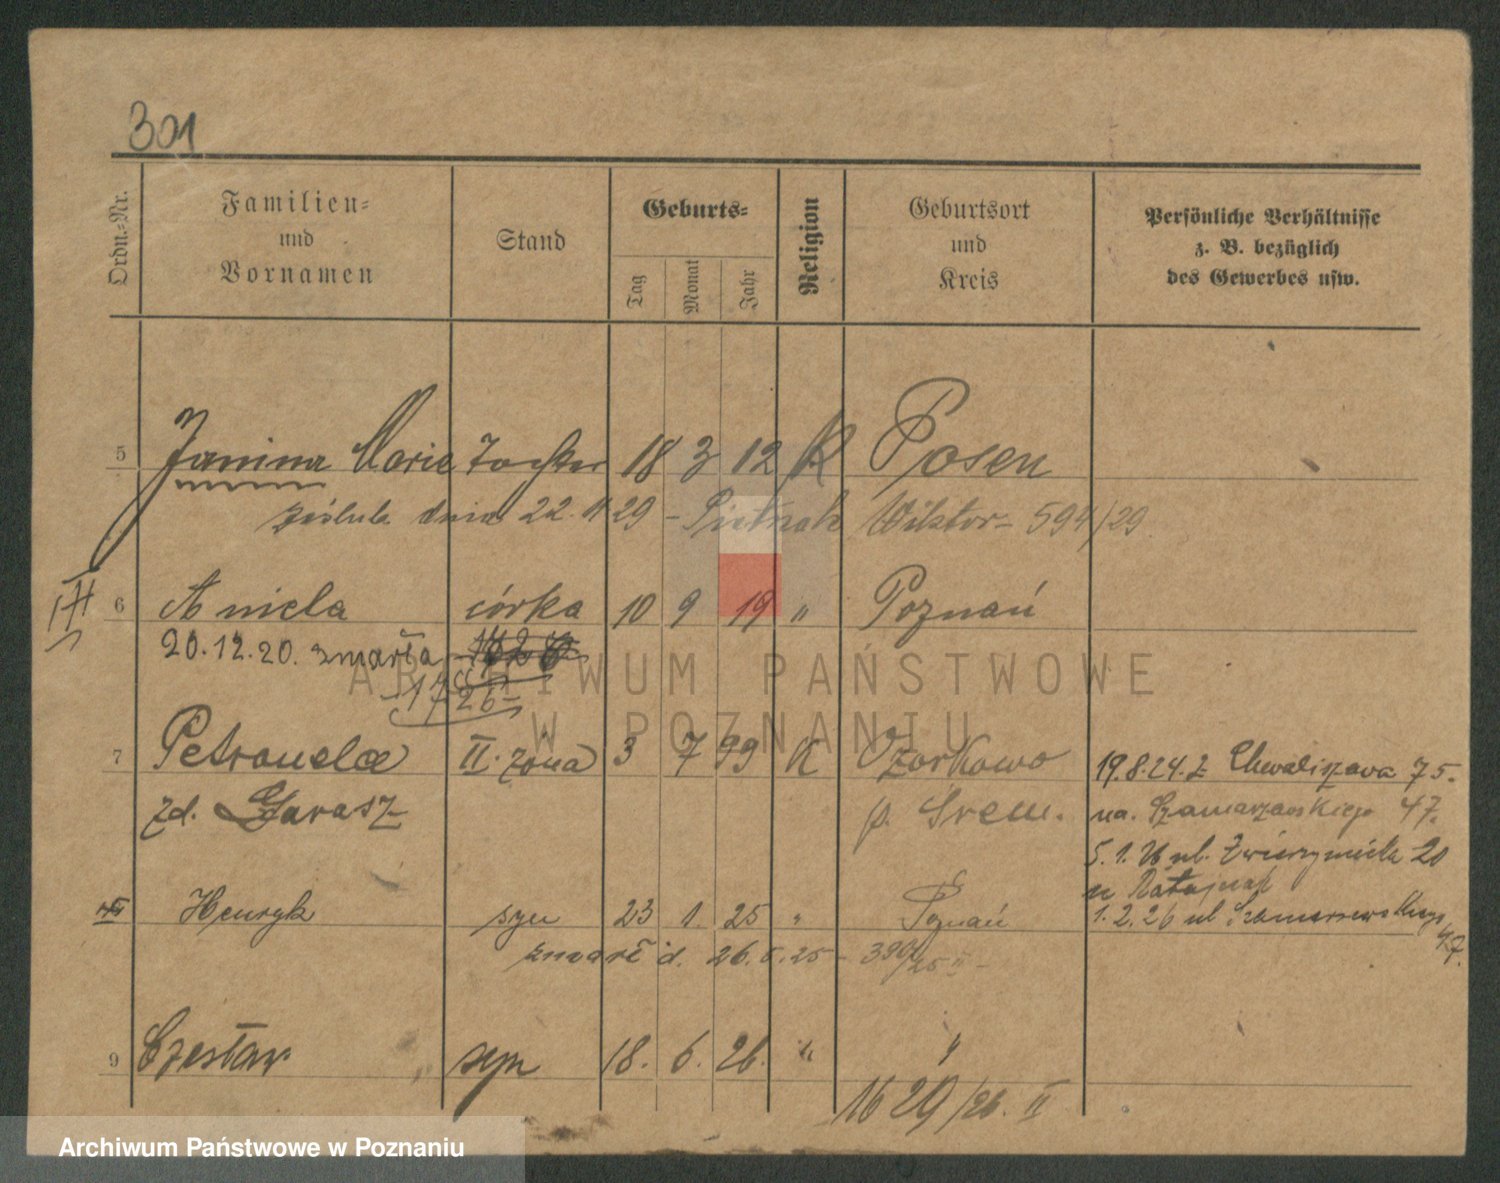 301
Ordn.-Nr.
Familien-
und
Vornamen
Stand
Geburts-
Tag
Monat
Jahr
Religion
Geburtsort
und
Kreis
Persönliche Verhältnisse
z. B. bezüglich
des Gewerbes usw.
5 Janina Marie Tochter 18 3 12 K Posen
dnia 22. 11 29 - Wiktor - 594/29
6 Aniela córka 10 9 19 " Poznań
20.12.20. zmarła
7 Petronela II. żona 3 7 99 K 19.8.24. Chwaliszewa 75.
zd. Garasz p. Śrem. na. Szamarzewskiego 47.
5.1.26 ul. Zwierzyniecka 20
u Ratajczak
Henryk syn 23 1. 25 " Poznań 1.2.26 ul Szamarzewskiego 47.
zmarł d. 26.5.25 -
9 Czesław syn 18. 6. 26. " "
1629/26. II
ARCHIWUM PAŃSTWOWE
W POZNANIU
Archiwum Państwowe w Poznaniu